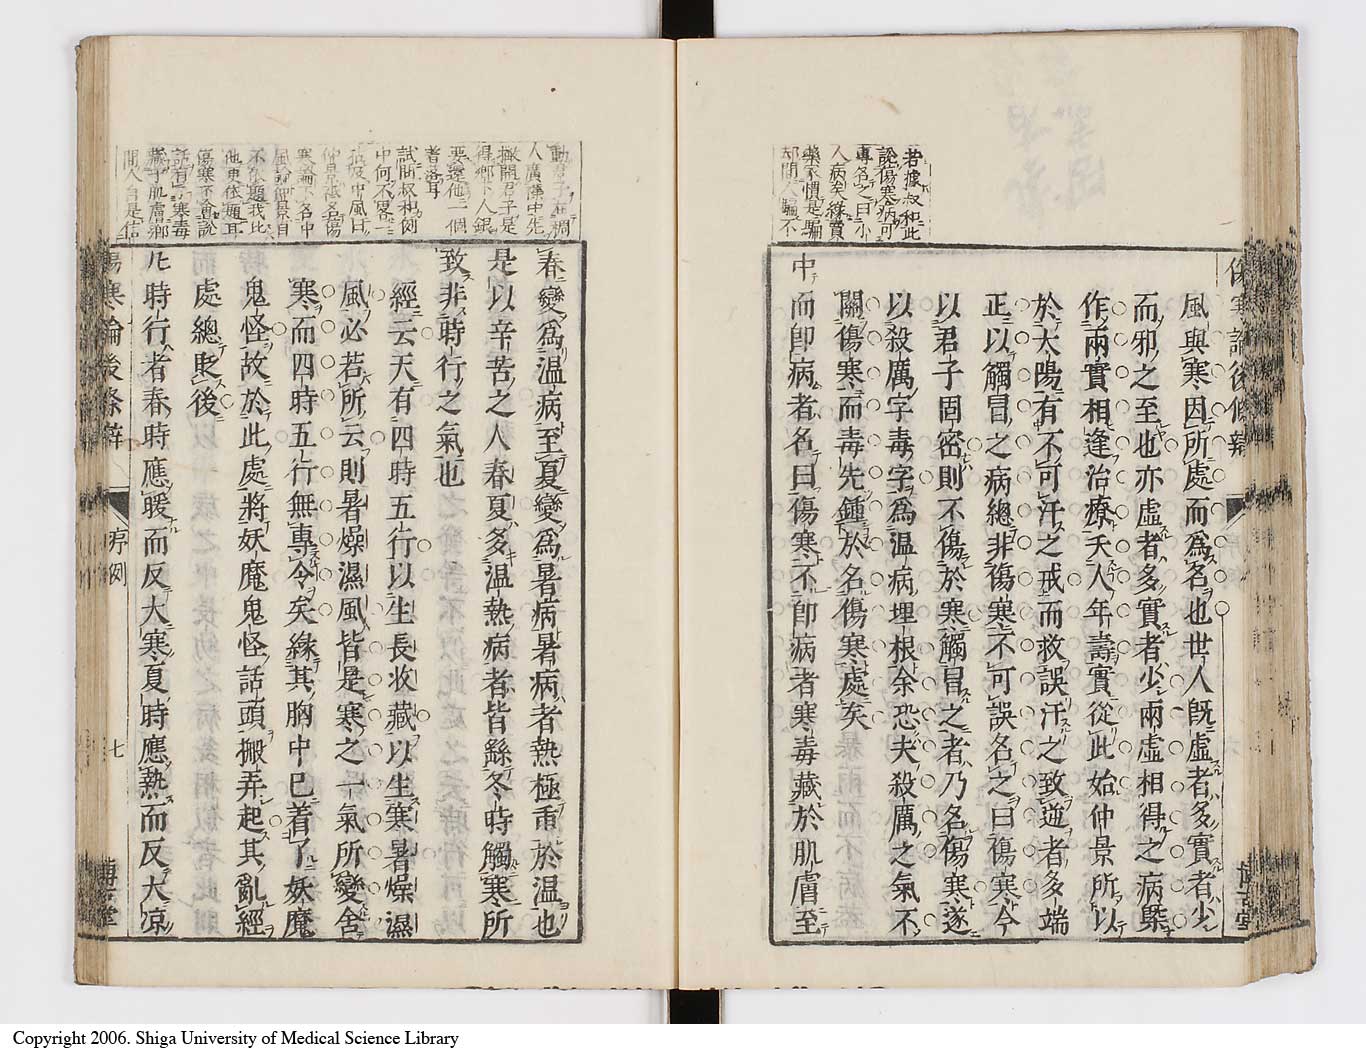 若據叔和此
訟傷寒病可
專名之曰小
人病矣緣賣
藥家慣是騙
却閒人騙不
傷寒論後條辨
風與寒因所處而爲名也世人既虛者多實者少
而邪之至也亦虛者多實者少兩虛相得之病槩
作兩實相逢治療夭人年壽實從此始仲景所以
於太陽有不可汗之戒而救誤汗之致逆者多端
正以觸冒之病總非傷寒不可誤名之曰傷寒今
以君子固密則不傷於寒觸冒之者乃名傷寒遂
以殺厲字毒字爲温病埋根余恐夫殺厲之氣不
關傷寒而毒先鍾於名傷寒處矣
中而卽病者名曰傷寒不卽病者寒毒藏於肌膚至
動君子在稠
人廣衆中先
撇開君子是
得鄉下人銀
要還他一個
着落耳
試問叔和例
中何不畧一
扳及中風曰
仲景祇名傷
寒論不名中
風論無景自
不依題我比
他更依題耳
傷寒不會説
話有了寒毒
藏于肌膚鄉
間人自是信
春變爲温病至夏變爲暑病暑病者熱極重於温也
是以辛苦之人春夏多温熱病者皆繇冬時觸寒所
致非時行之氣也
經云天有四時五行以生長收藏以生寒暑燥濕
風必若所云則暑燥濕風皆是寒之一氣所變舍
寒而四時五行無專令矣緣其胸中已着了妖魔
鬼怪故於此處將妖魔鬼怪話頭搬弄起其亂經
處總貶後
凡時行者春時應暖而反大寒夏時應熱而反大凉
傷寒論後條辨
序例
七
博古堂
Copyright 2006. Shiga University of Medical Science Library